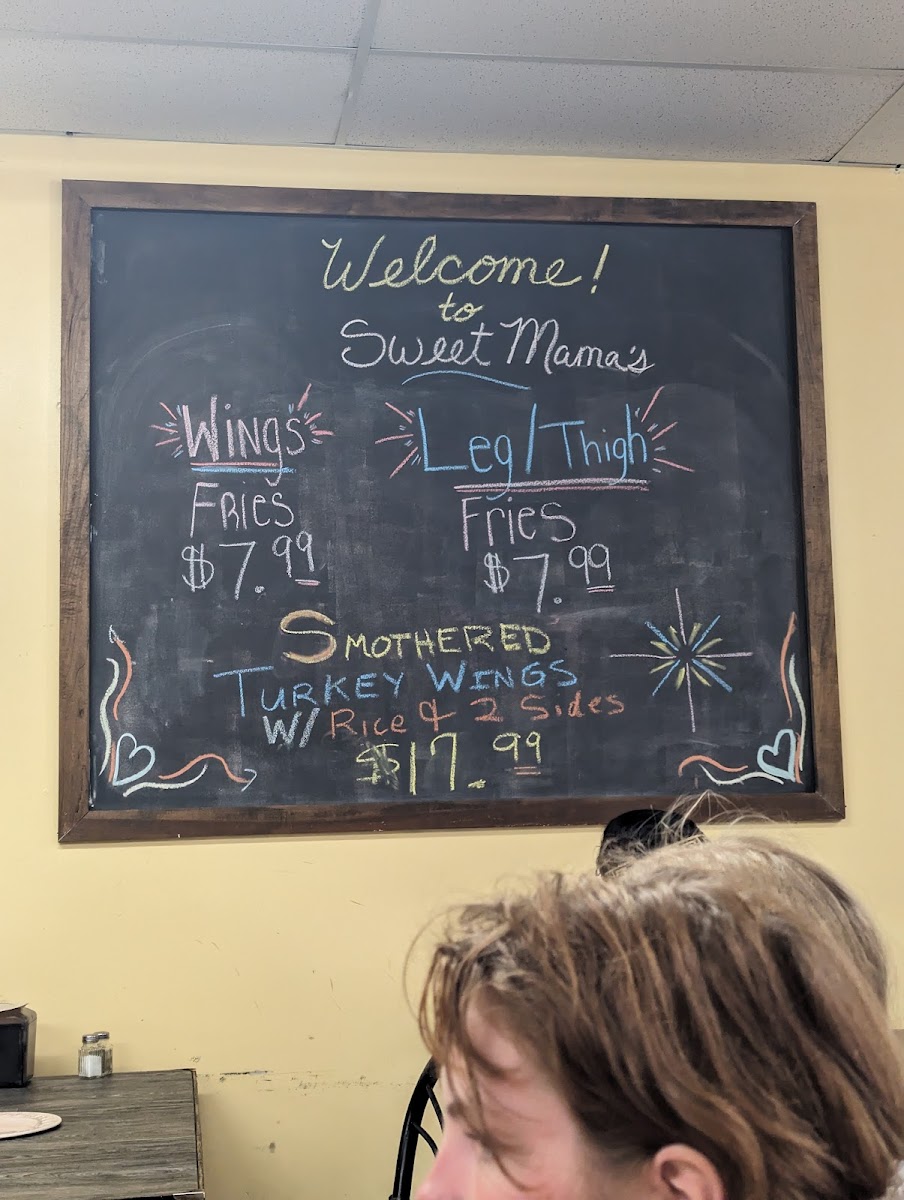 Welcome!
to
Sweet Mama's
Wings
Fries
$7.99
Leg/Thigh
Fries
$7.99
SMOTHERED
TURKEY WINGS
W/ Rice & 2 Sides
$17.99